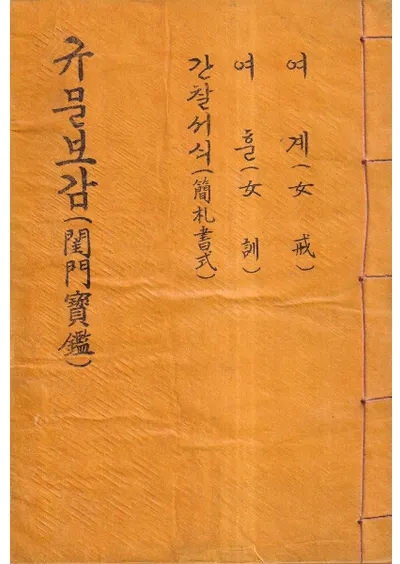 여 계(女 戒)
여 훈(女 訓)
간찰서식(簡札書式)
규문보감(閨門寶鑑)